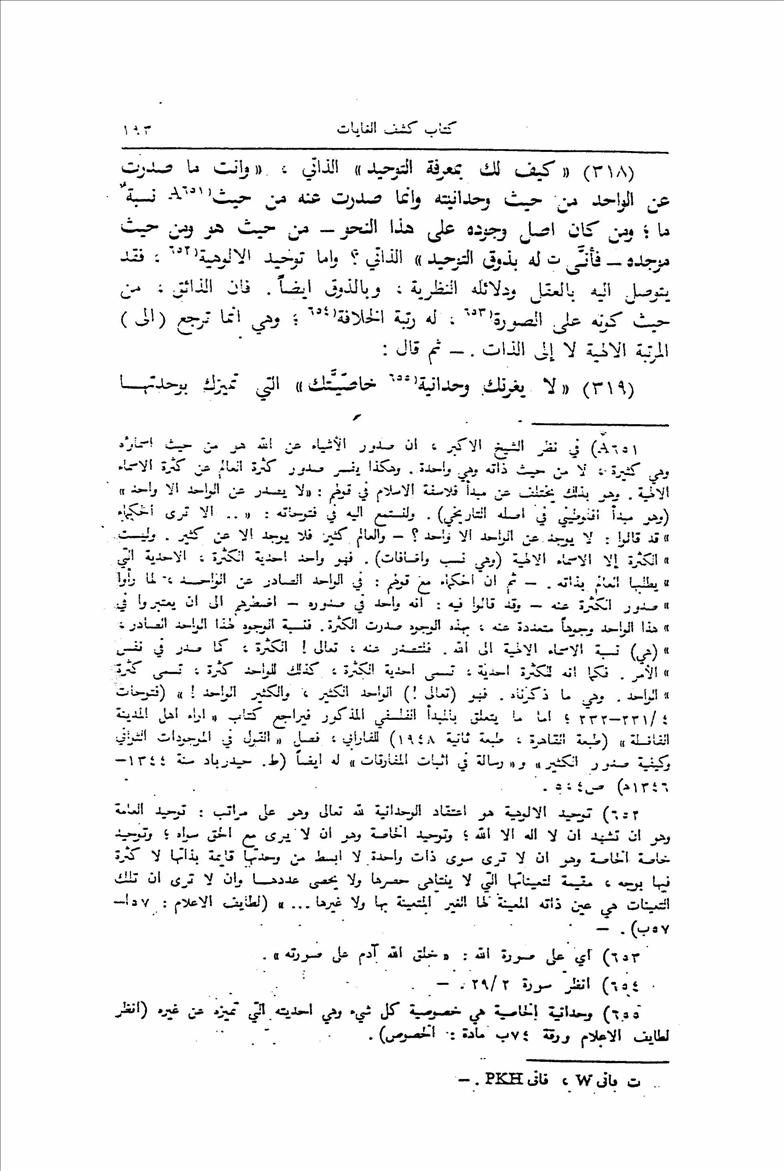 كتاب كشف الغايات ١٩٣
(٣١٨) « كيف لك بمعرفة التوحيد » الذاتي ، « وانت ما صدرت
عن الواحد من حيث وحدانيته وانما صدرت عنه من حيث(٦٥١A نسبةٌ
ما ؛ ومن كان اصل وجوده على هذا النحو – من حيث هو ومن حيث
موجده – فأنَّى ت له بذوق التوحيد » الذاتي ؟ واما توحيد الالوهية(٦٥٢ ، فقد
يتوصل اليه بالعقل ودلائله النظرية ، وبالذوق ايضاً . فان الذائق ، من
حيث كونه على الصورة(٦٥٣ ، له رتبة الخلافة(٦٥٤ ؛ وهي انما ترجع ( الى )
المرتبة الالهية لا إلى الذات . – ثم قال :
(٣١٩) « لا يغرنك وحدانية(٦٥٥ خاصّيّتك » التي تميزك بوحدتها
٦٥١A) في نظر الشيخ الاكبر ، ان صدور الأشياء عن الله هو من حيث اسماؤه
وهي كثيرة ، لا من حيث ذاته وهي واحدة . وهكذا يفسر صدور كثرة العالم عن كثرة الاسماء
الالهية . وهو بذلك يختلف عن مبدأ فلاسفة الاسلام في قولهم : «لا يصدر عن الواحد الا واحد »
(وهو مبدأ افلوطيني في اصله التاريخي) . ولنستمع اليه في فتوحاته : « .. الا ترى الحكماء
» قد قالوا : لا يوجد عن الواحد الا واحد ؟ – والعالم كثير فلا يوجد الا عن كثير . وليست
» الكثرة إلا الاسماء الالهية (وهي نسب واضافات) . فهو واحد احدية الكثرة ، الاحدية التي
» يطلبها العالم بذاته . – ثم ان الحكماء مع قولهم : في الواحد الصادر عن الواحد ، لما رأوا
» صدور الكثرة عنه – وقد قالوا فيه : انه واحد في صدوره – اضطرهم الى ان يعتبروا في
» هذا الواحد وجوهاً متعددة عنه ، بهذه الوجوه صدرت الكثرة . فنسبة الوجوه لهذا الواحد الصادر ،
» (هي) نسبة الاسماء الالهية الى الله . فلتصدر عنه ، تعالى ! الكثرة ، كما صدر في نفس
» الأمر . فكما انه للكثرة احدية ، تسمى احدية الكثرة ، كذلك للواحد كثرة ، تسمى كثرة
» الواحد . وهي ما ذكرناه . فهو (تعالى !) الواحد الكثير ، والكثير الواحد ! » (فتوحات
٤/٢٣١–٢٣٢ ؛ اما ما يتعلق بالمبدأ الفلسفي المذكور فيراجع كتاب « اراء اهل المدينة
الفاضلة » (طبعة القاهرة ، طبعة ثانية ١٩٤٨) للفارابي ، فصل « القول في الموجودات الثواني
وكيفية صدور الكثير » و « رسالة في اثبات المفارقات » له ايضاً (ط. حيدرباد سنة ١٣٤٤–
١٣٤٦م) ص٤،٥ .
٦٥٢) توحيد الالوهية هو اعتقاد الوحدانية لله تعالى وهو على مراتب : توحيد العامة
وهو ان تشهد ان لا اله الا الله ؛ وتوحيد الخاصة وهو ان لا يرى مع الحق سواه ؛ وتوحيد
خاصة الخاصة وهو ان لا ترى سوى ذات واحدة لا ابسط من وحدتها قايمة بذاتها لا كثرة
فيها بوجه ، مقيمة لتعيناتها التي لا يتناهى حصرها ولا يحصى عددها وان لا ترى ان تلك
التعينات هي عين ذاته المعينة لها الغير المتعينة بها ولا غيرها ... » (لطايف الاعلام : ٥٧ا–
٥٧ب) . –
٦٥٣) اي على صورة الله : « خلق الله آدم على صورته » .
٦٥٤) انظر سورة ٢٩/٢ . –
٦٥٥) وحدانية الخاصية هي خصوصية كل شيء وهي احديته التي تميزه عن غيره (انظر
لطايف الاعلام ورقة ٧٤ب مادة : الخصوص) .
ت بانى W ، فانى PKH . –